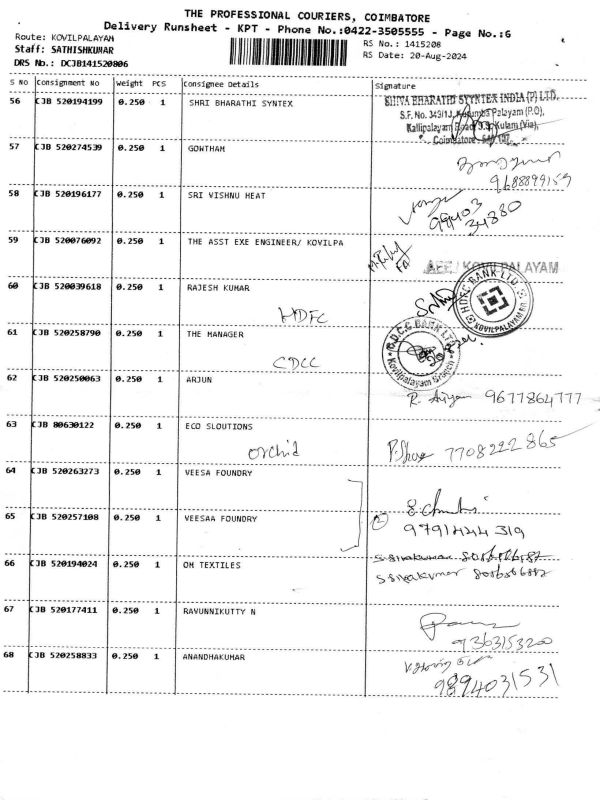 THE PROFESSIONAL COURIERS, COIMBATORE
Delivery Runsheet - KPT - Phone No.:0422-3505555 - Page No.:6
Route: KOVILPALAYAM
Staff: SATHISHKUMAR
DRS No.: DCJB141520806
RS No.: 1415208
RS Date: 20-Aug-2024
S No Consignment No Weight PCS Consignee Details Signature
56 CJB 520194199 0.250 1 SHRI BHARATHI SYNTEX
SHIVA BHARATHI SYYNTEX INDIA (P) LTD.
S.F. No. 349/1J, Kurumba Palayam (P.O),
Kalipalayam Road, S.S. Kulam (Via),
Coimbatore - 641 107.
57 CJB 520274539 0.250 1 GOWTHAM
9688899159
58 CJB 520196177 0.250 1 SRI VISHNU HEAT
99403
34880
59 CJB 520076092 0.250 1 THE ASST EXE ENGINEER/ KOVILPA
AEE / KOVILPALAYAM
60 CJB 520039618 0.250 1 RAJESH KUMAR
HDFC
HDFC BANK LTD.
KOVILPALAYAM BR
61 CJB 520258790 0.250 1 THE MANAGER
CDCC
C.D.C.C. BANK LTD.
Kovilpalayam Branch
62 CJB 520250063 0.250 1 ARJUN
R. Arjun 9677864777
63 CJB 80630122 0.250 1 ECO SLOUTIONS
Orchid
7708222865
64 CJB 520263273 0.250 1 VEESA FOUNDRY
65 CJB 520257108 0.250 1 VEESAA FOUNDRY
2
9791444319
66 CJB 520194024 0.250 1 OM TEXTILES
S Sivakumar
67 CJB 520177411 0.250 1 RAVUNNIKUTTY N
9363153200
68 CJB 520258833 0.250 1 ANANDHAKUMAR
9894031531